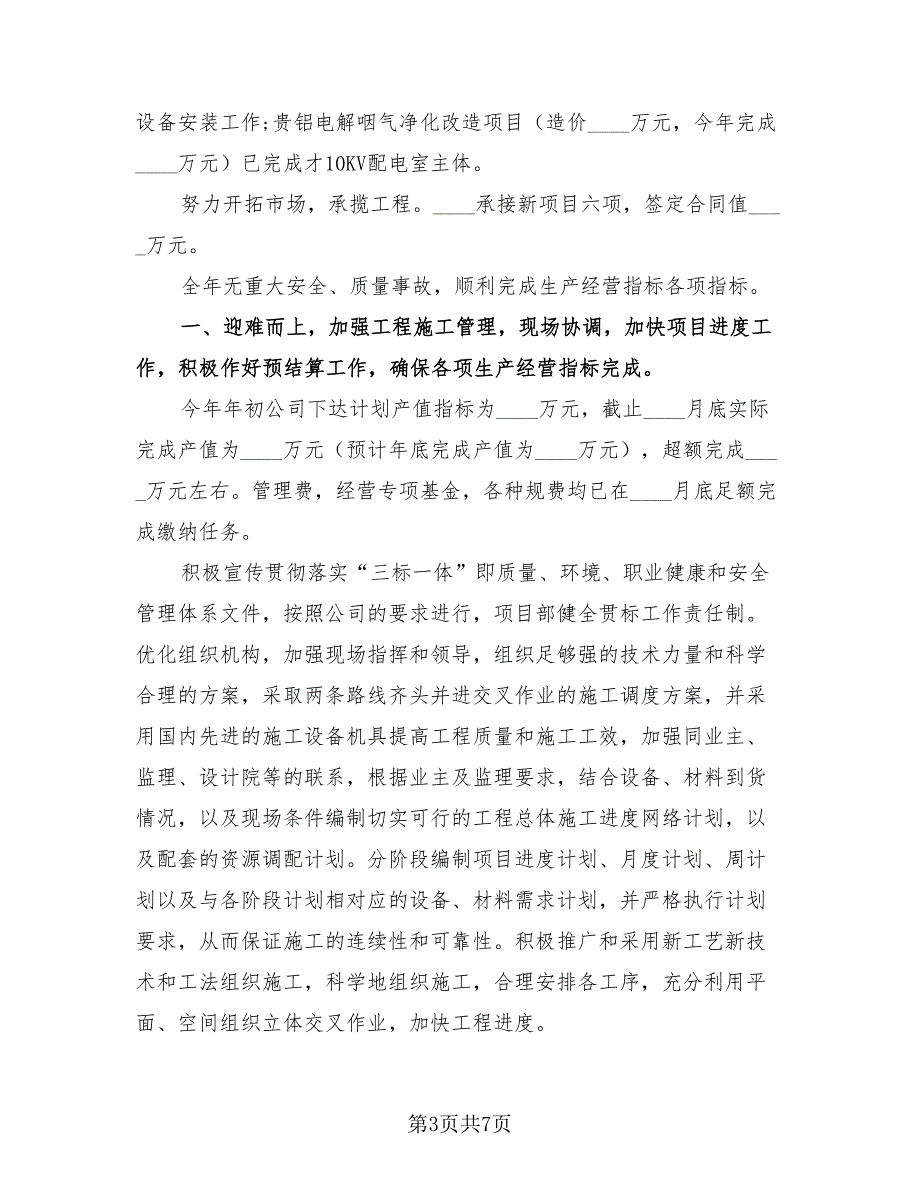 设备安装工作;贵铝电解咽气净化改造项目（造价____万元，今年完成
____万元）已完成才10KV配电室主体。
努力开拓市场，承揽工程。____承接新项目六项，签定合同值___
_万元。
全年无重大安全、质量事故，顺利完成生产经营指标各项指标。
一、迎难而上，加强工程施工管理，现场协调，加快项目进度工
作，积极作好预结算工作，确保各项生产经营指标完成。
今年年初公司下达计划产值指标为____万元，截止____月底实际
完成产值为____万元（预计年底完成产值为____万元），超额完成___
_万元左右。管理费，经营专项基金，各种规费均已在____月底足额完
成缴纳任务。
积极宣传贯彻落实“三标一体”即质量、环境、职业健康和安全
管理体系文件，按照公司的要求进行，项目部健全贯标工作责任制。
优化组织机构，加强现场指挥和领导，组织足够强的技术力量和科学
合理的方案，采取两条路线齐头并进交叉作业的施工调度方案，并采
用国内先进的施工设备机具提高工程质量和施工工效，加强同业主、
监理、设计院等的联系，根据业主及监理要求，结合设备、材料到货
情况，以及现场条件编制切实可行的工程总体施工进度网络计划，以
及配套的资源调配计划。分阶段编制项目进度计划、月度计划、周计
划以及与各阶段计划相对应的设备、材料需求计划，并严格执行计划
要求，从而保证施工的连续性和可靠性。积极推广和采用新工艺新技
术和工法组织施工，科学地组织施工，合理安排各工序，充分利用平
面、空间组织立体交叉作业，加快工程进度。
第3页共7页